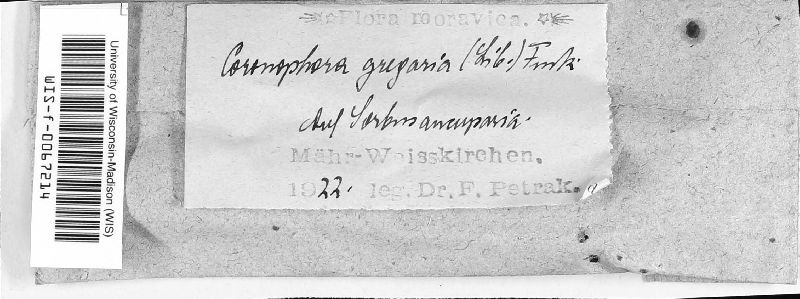 Flora moravica.
Coronophora gregaria (Lib.) Fuck.
Auf Sorbus aucuparia.
Mähr-Weisskirchen.
1922. leg. Dr. F. Petrak.
University of Wisconsin-Madison (WIS)
WIS-f-0067214